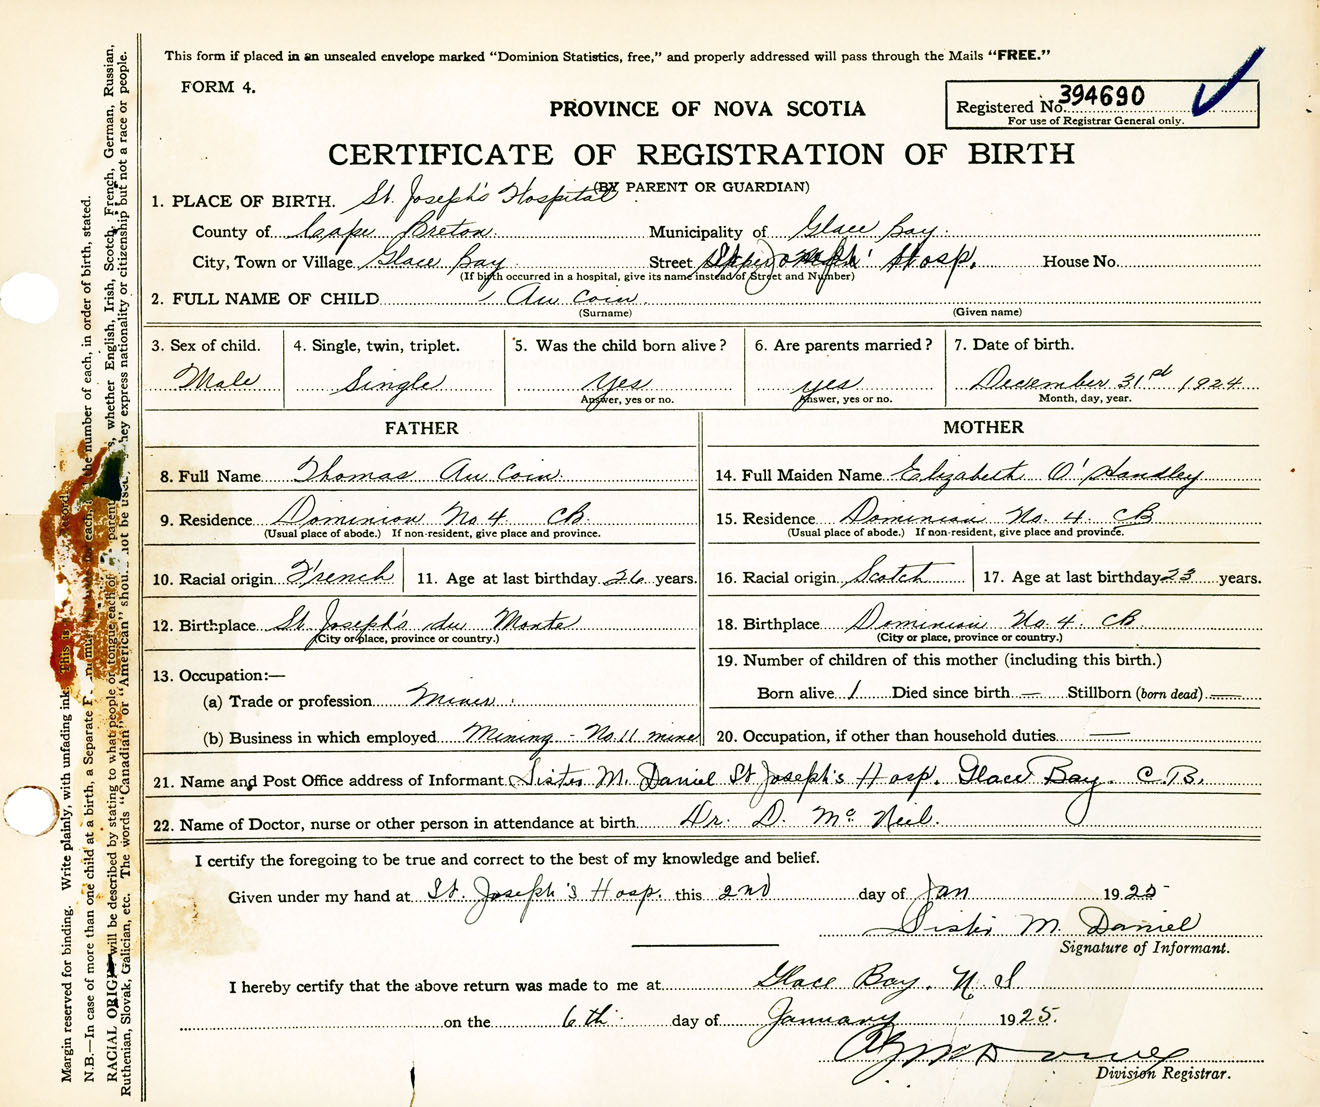 This form if placed in an unsealed envelope marked “Dominion Statistics, free,” and properly addressed will pass through the Mails “FREE.”
FORM 4.
Registered No. 394690
For use of Registrar General only.
PROVINCE OF NOVA SCOTIA
CERTIFICATE OF REGISTRATION OF BIRTH
(BY PARENT OR GUARDIAN)
1. PLACE OF BIRTH. St. Joseph's Hospital
County of Cape Breton Municipality of Glace Bay
City, Town or Village Glace Bay Street Hosp. House No.
(If birth occurred in a hospital, give its name instead of Street and Number)
2. FULL NAME OF CHILD Au Coin
(Surname) (Given name)
3. Sex of child. 4. Single, twin, triplet. 5. Was the child born alive? 6. Are parents married? 7. Date of birth.
Male Single Yes yes December 31 1924
Answer, yes or no. Answer, yes or no. Month, day, year.
FATHER MOTHER
8. Full Name Thomas Au Coin 14. Full Maiden Name Elizabeth O'Handley
9. Residence Dominion No 4. CB. 15. Residence Dominion No. 4. CB
(Usual place of abode.) If non-resident, give place and province. (Usual place of abode.) If non-resident, give place and province.
10. Racial origin French 11. Age at last birthday 26 years. 16. Racial origin Scotch 17. Age at last birthday 23 years.
12. Birthplace St Joseph's du Monte 18. Birthplace Dominion No. 4. CB.
(City or place, province or country.) (City or place, province or country.)
13. Occupation:— 19. Number of children of this mother (including this birth.)
(a) Trade or profession Miner. Born alive 1 Died since birth — Stillborn (born dead) —
(b) Business in which employed Mining - No. 11 mine 20. Occupation, if other than household duties —
21. Name and Post Office address of Informant Sister M. Daniel St Joseph's Hosp. Glace Bay. C.B.
22. Name of Doctor, nurse or other person in attendance at birth Dr. D. Mc Neil.
I certify the foregoing to be true and correct to the best of my knowledge and belief.
Given under my hand at St. Joseph's Hosp. this 2nd day of Jan 1925
Sister M. Daniel
Signature of Informant.
I hereby certify that the above return was made to me at Glace Bay. N.S
on the 6th day of January 1925.
Division Registrar.
Margin reserved for binding. Write plainly, with unfading ink. This is record.
N.B.—In case of more than one child at a birth, a Separate each, the number of each, in order of birth, stated.
RACIAL ORIGIN will be described by stating to what people or tongue each of parents, whether English, Irish, Scotch, French, German, Russian,
Ruthenian, Slovak, Galician, etc. The words “Canadian” or “American” should not be used, they express nationality or citizenship but not a race or people.